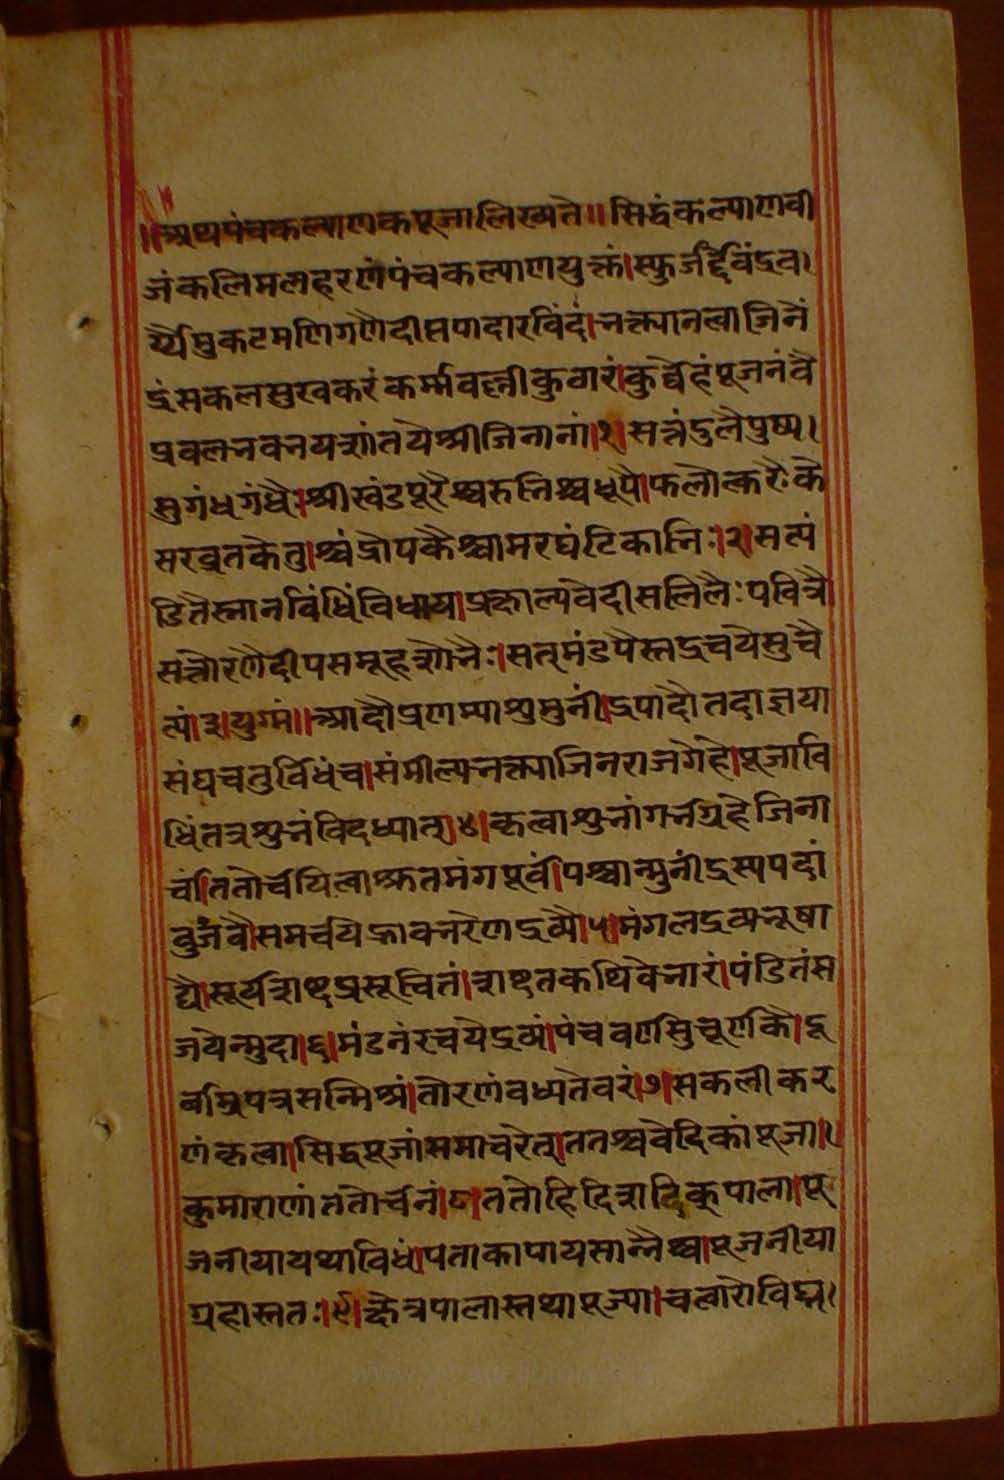 ॥अथपंचकल्याणकपूजालिख्यते॥सिद्धंकल्याणबी
जंकलिमलहरणंपंचकल्याणयुक्तं।स्फूर्जद्देवेंद्रव।
र्य्यैमुकटमणिगणैदीप्तपादारविंदं।भक्त्यानत्वाजिनें
द्रंसकलसुखकरंकर्म्मवल्लीकुठारं।कुर्व्वेहंपूजनंवै
प्रबलभवभयशांतयेश्रीजिनानां।१।सत्तंदुलैपुष्प।
सुगंधगंधैः।श्रीखंडपूरैश्चरुभिश्चधूपै।फलोत्करैःके
सरव्रतकेतु।श्चंद्रोपकैश्चामरघंटिकाभिः।२।सत्पं
डितैस्नानविंधिंविधाय।प्रक्षाल्यवेदीसलिलैःपवित्रै
सत्तोरणैदीपसमूहशोभैः।सत्मंडपैस्तद्रचयेसुचै
त्यं।३।युग्मं॥आदौप्रणम्याशुमुनीं।द्रपादौतदाज्ञया
संघचतुर्विधंच।संमील्यभक्त्याजिनराजगेहे।पूजावि
धिंतत्रशुभंविदध्यात्।४।कृत्वाशुभांगर्भग्रहेजिना
र्चं।ततोर्चयित्वाश्रुतमंगपूर्वं।पश्चान्मुनींद्रस्यपदां
बुजंवै।समर्चयेछ्रावकनरेणद्रव्यै।५।मंगलद्रव्यभूषा
द्यै।सूर्यशब्दप्रसूचितं।शब्दतकथिकेनारं।पंडितंस
जयेन्मुदा।६।मंडनंरचयेद्रव्यं।पंचवर्णसुचूर्णकै।दू
र्बाम्रपत्रसन्मिश्रं।तोरणंवध्यतेवरं।७।सकलीकर
णंकृत्वा।सिद्धपूजांसमाचरेत्।ततश्चवेदिकांपूजा।
कुमाराणांततोर्चनं।८।ततोहिदिशादिक्पाला।पू
जनीयायथाविधं।पताकापायसान्नैश्च।पूजनीया
ग्रहास्ततः।९।क्षेत्रपालास्तथापूज्या।चत्वारोविघ्न।